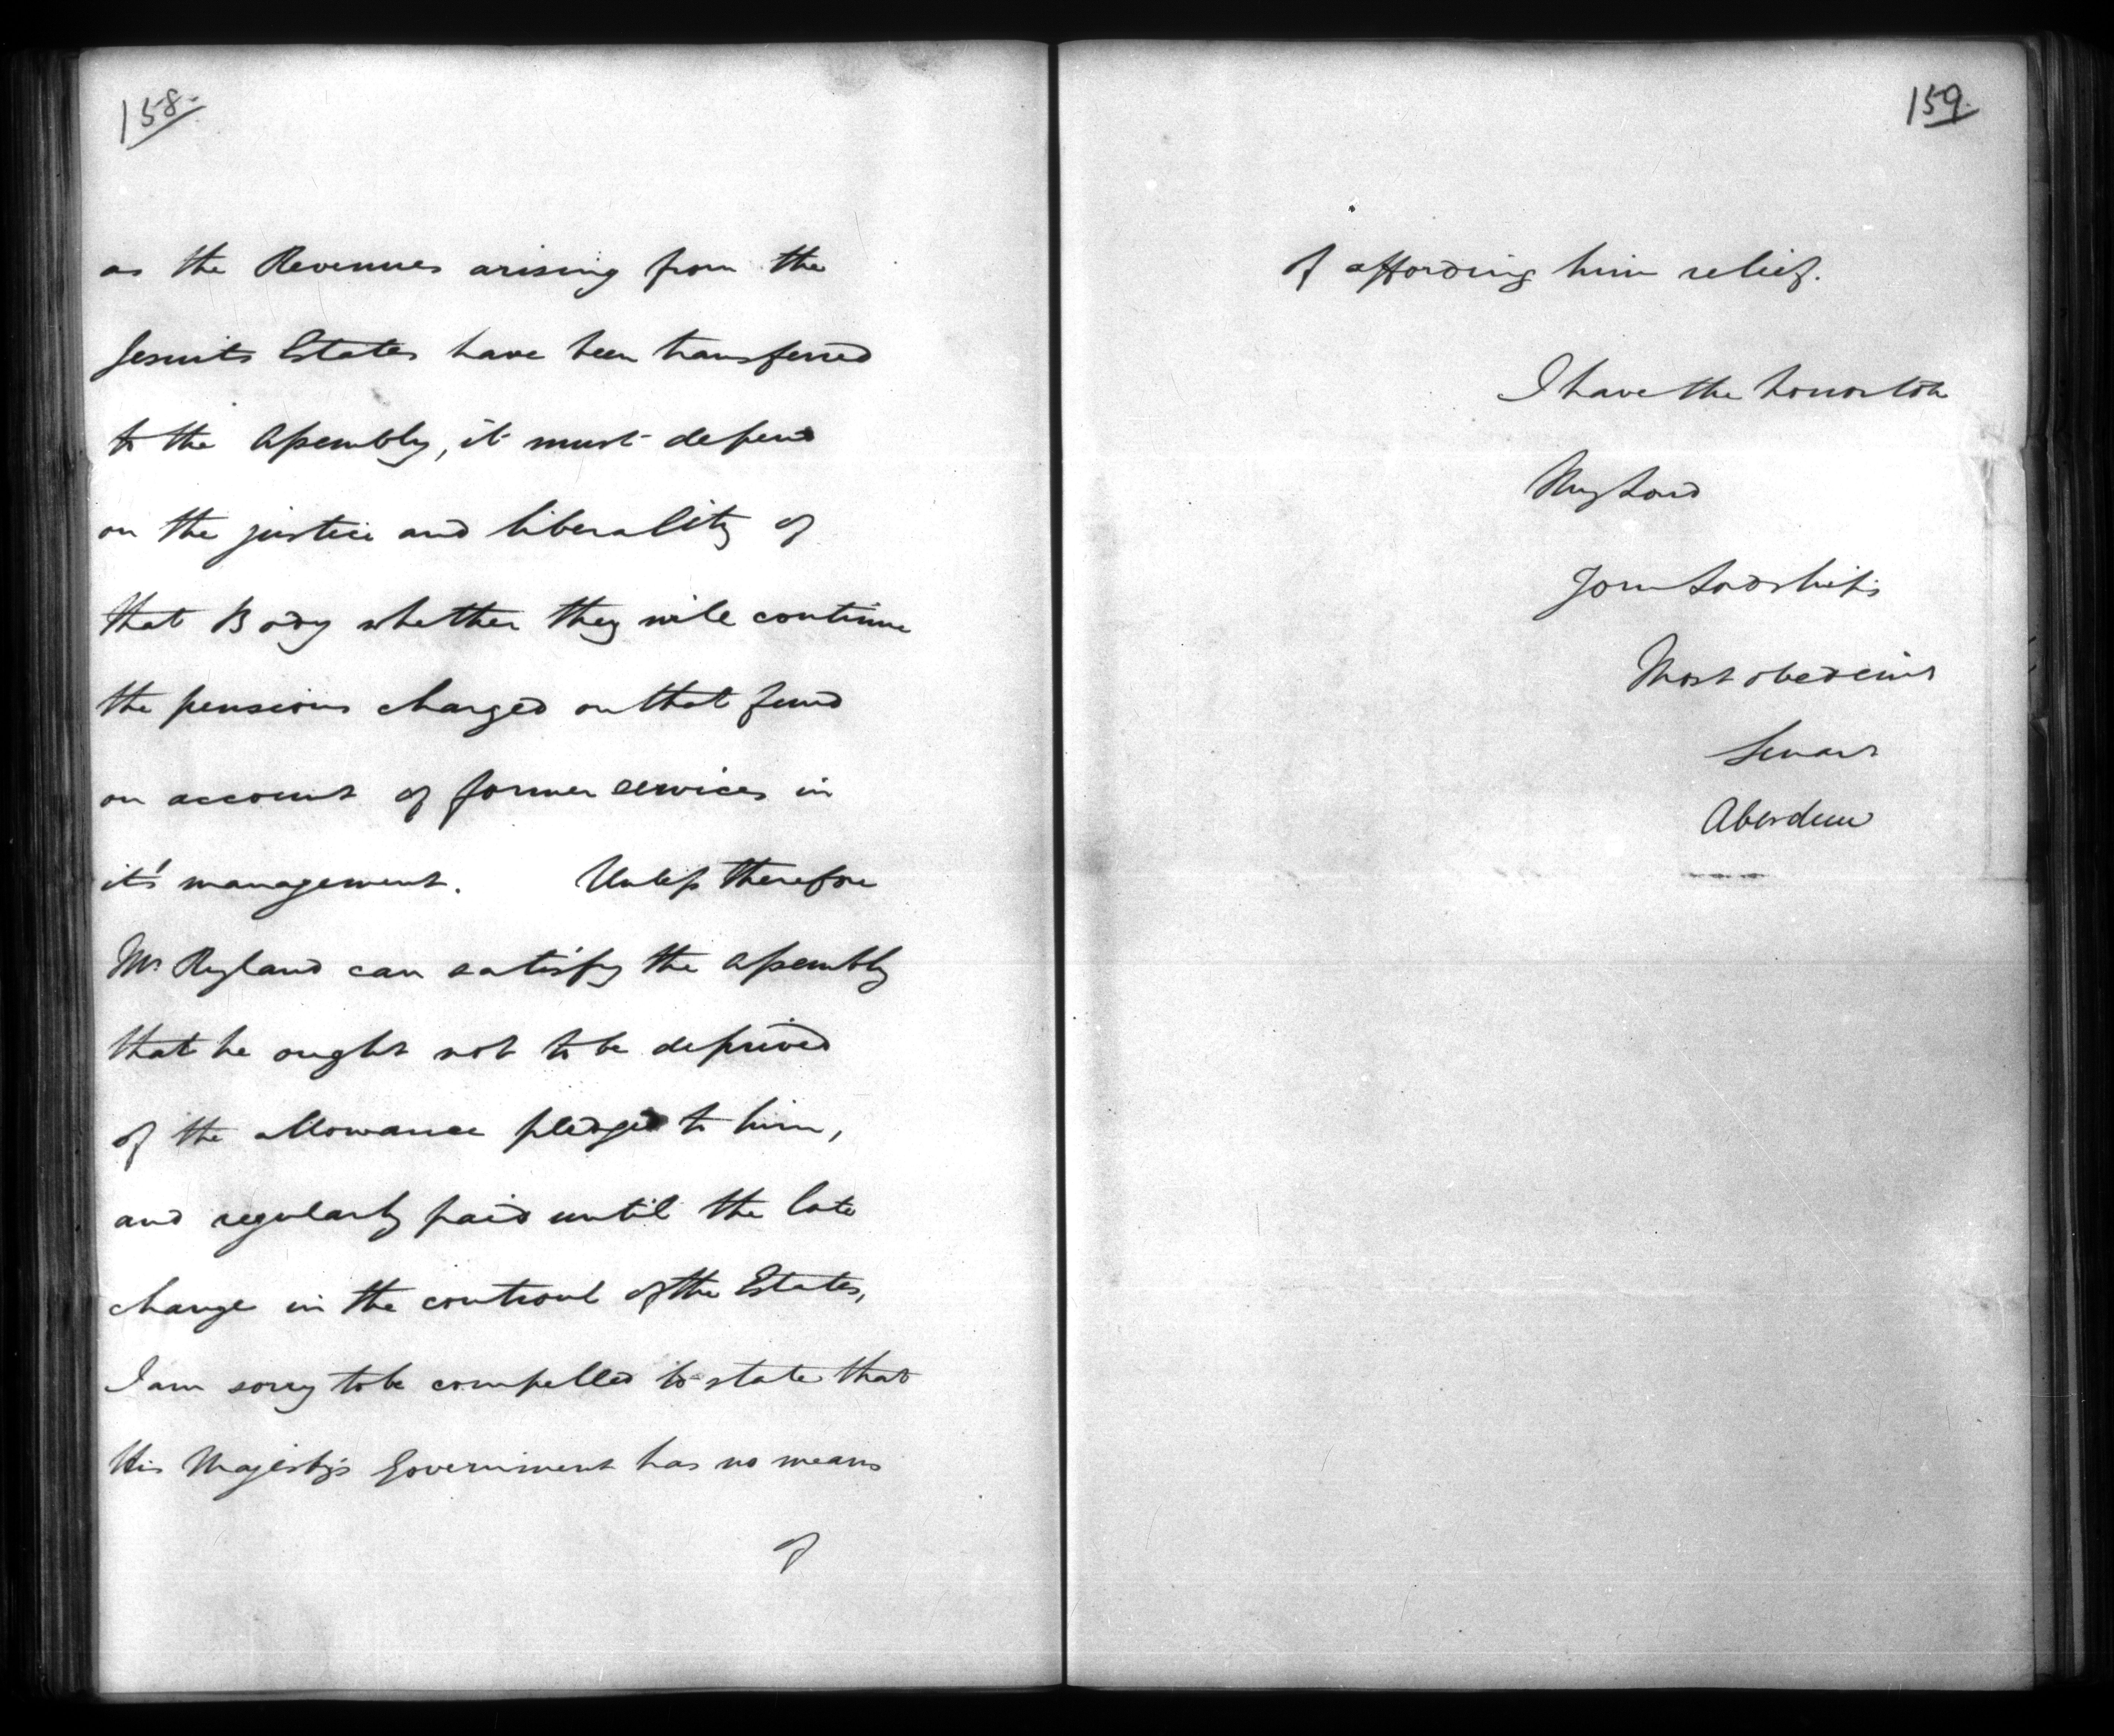 158.
as the Revenues arising from the
Jesuits Estates have been transferred
to the Assembly, it must depend
on the justice and liberality of
that Body whether they will continue
the pensions charged on that fund
on account of former services in
it's management. Unless therefore
Mr Ryland can satisfy the Assembly
that he ought not to be deprived
of the allowance pledged to him,
and regularly paid until the late
change in the controul of the Estates,
I am sorry to be compelled to state that
His Majesty's Government has no means
of
159.
of affording him relief.
I have the honor to be
My Lord
Your Lordship's
Most obedient
Servant
Aberdeen